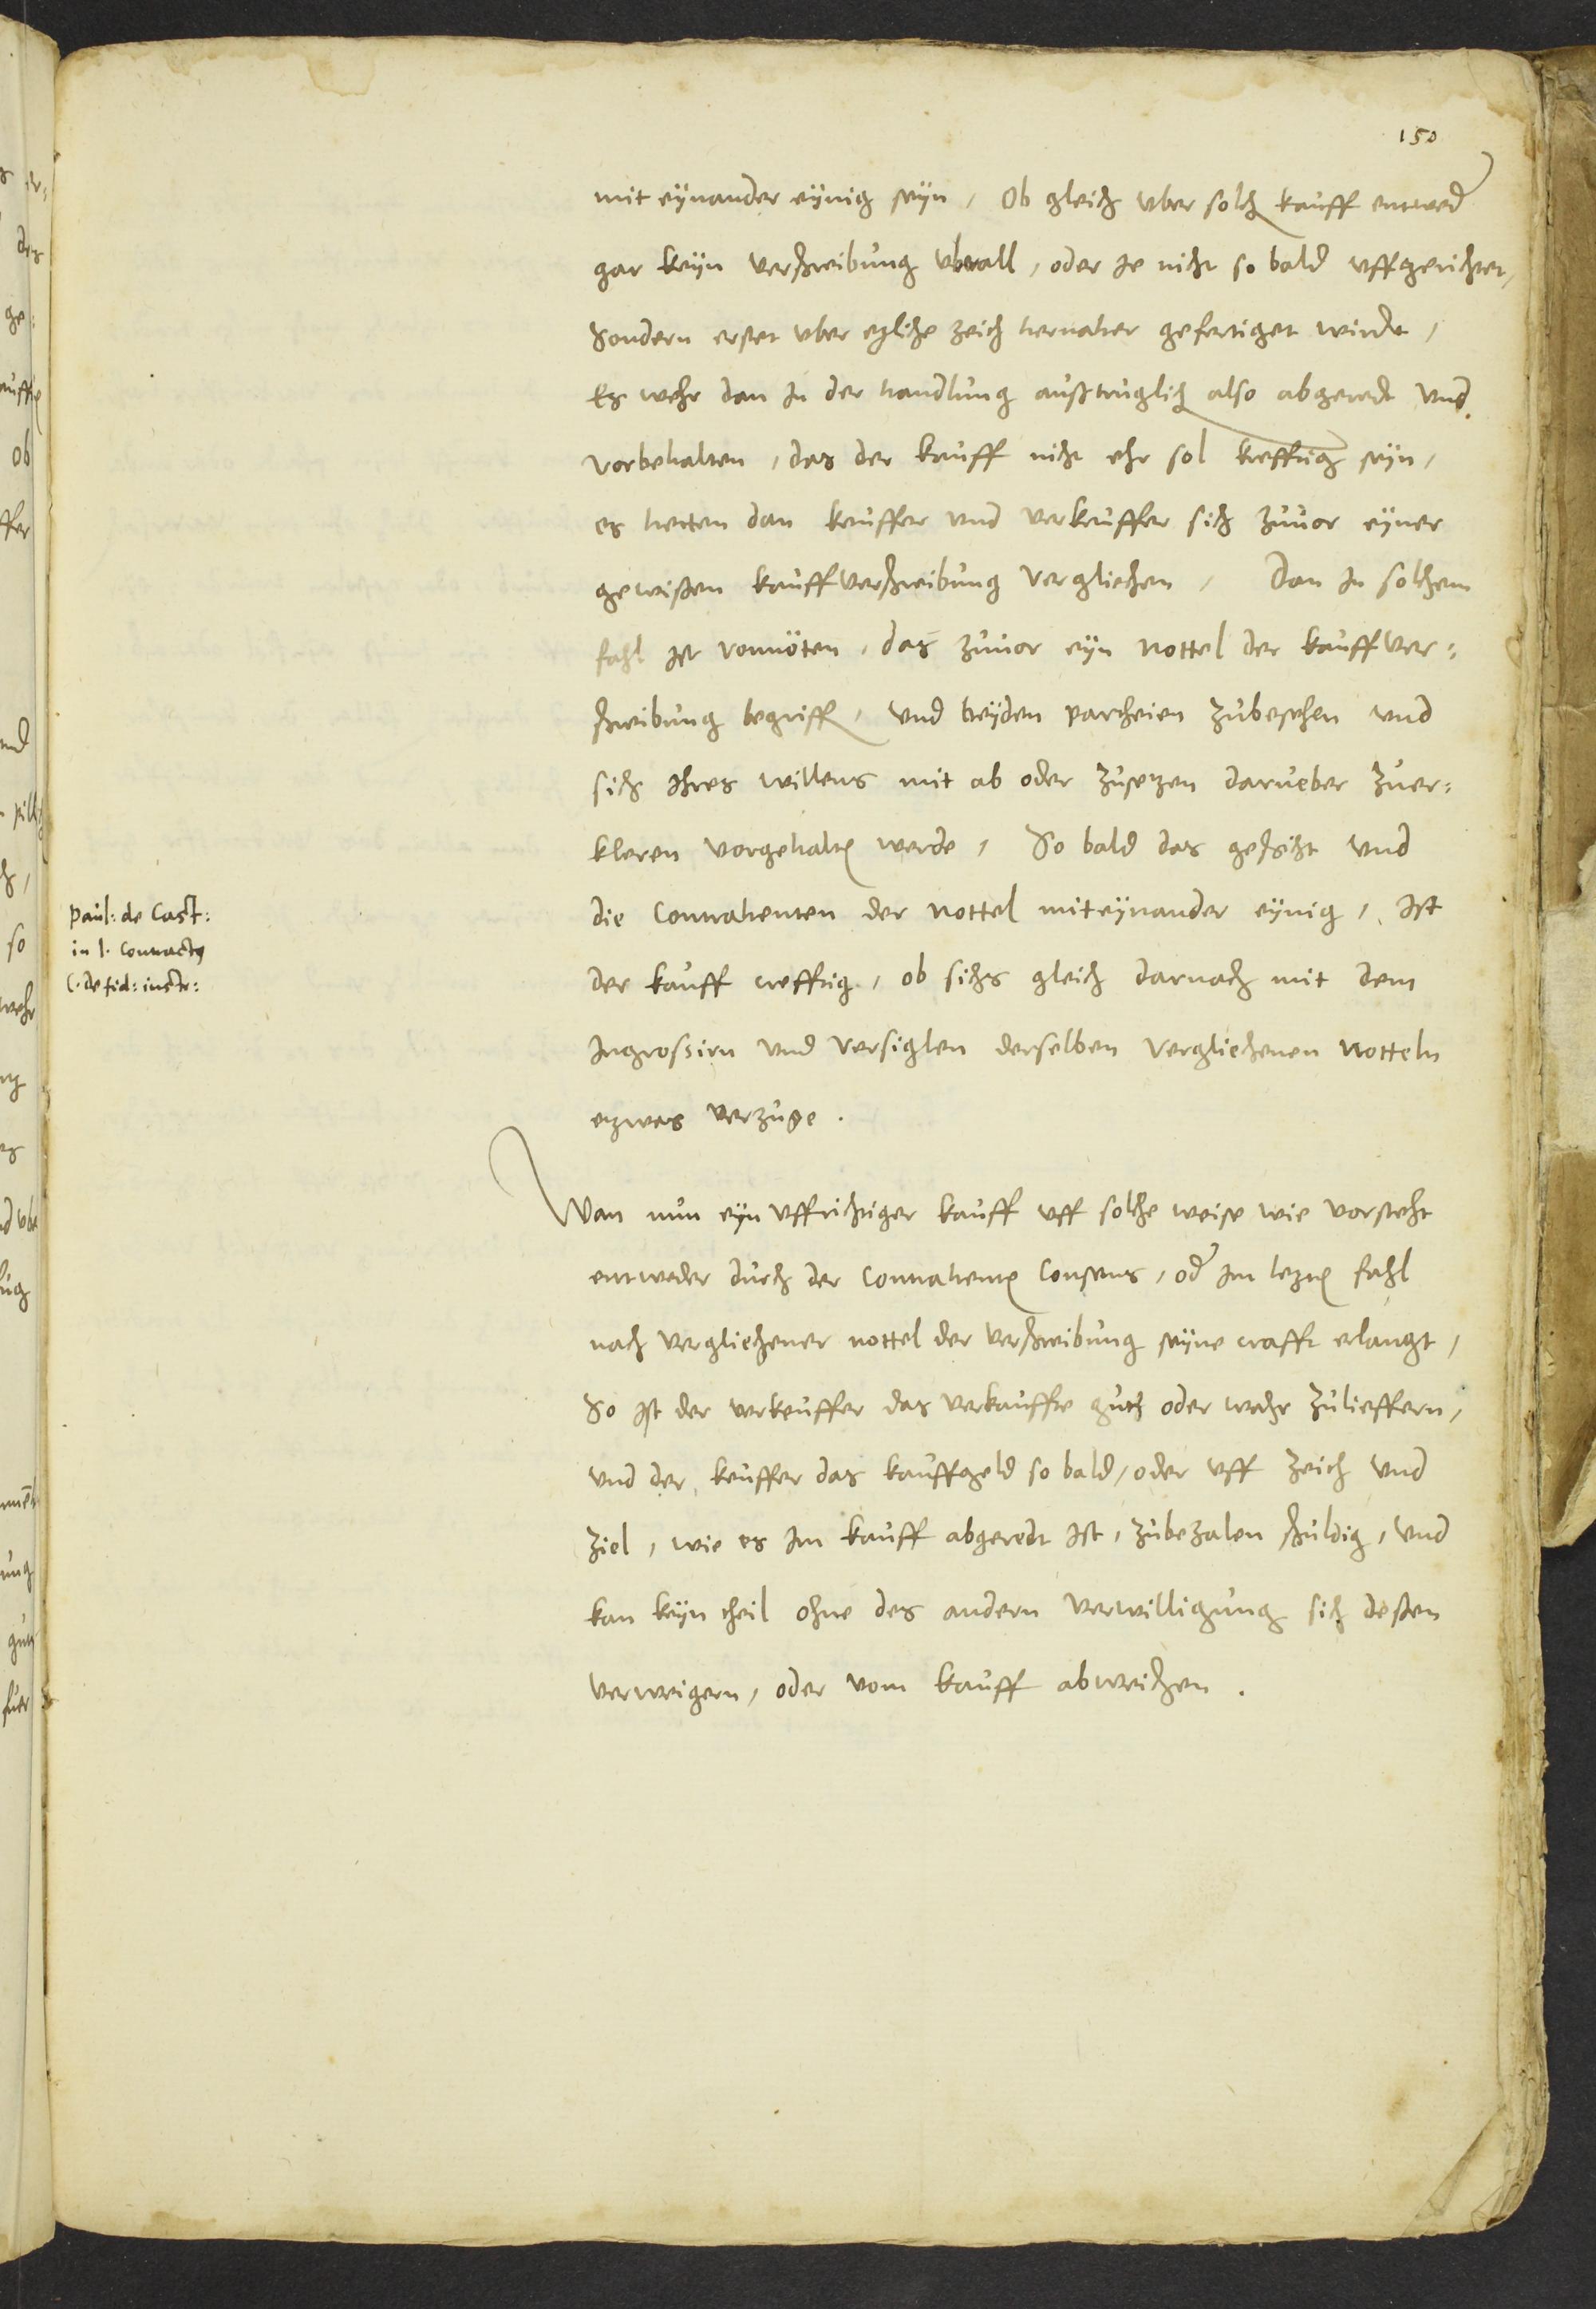 150
mit eynander eynig seyn, Ob gleich vber solch kauff entwed
gar keyn verschreibung vberall, oder Je nicht so bald vffgerichtet,
Sondern erstet vber etzliche zeith hernaher gefertiget wirdt,
Es wehr dan In der handlung außtruglich also abgeredt vnd
vorbehalten, das der kauff nicht ehr sol kreffticg seyn,
es hetten dan keuffer vnd verkeuffer sich zuuor eyner
gewissen kauffverschreibung verglichen, Dan In solchem
fahl ist vonnöten, das zuuor eyn Nottel der kauffver:
schreibung begriffen, vnd beyden partheien zubesehen vnd
sich Ihres willens mit ab oder zusetzen darueber zuer:
kleren vorgehalten werde, So bald das geschicht vnd
die Contrahenten der Nottel miteynander eynig, Ist
der kauff creftig, ob sichs gleich darnach mit dem
Ingrossirn vnd versiglen derselben verglichenen Notteln
etzwas verzuge.
Paul: de Cast:
in l. contractus
C. de fid: instr:
Wan nun eyn vffrichtiger kauff vff solche weise wie vorsteht
entweder durch der Contrahenten Consens, oder Im letzten fahl
nach verglichener nottel der verschreibung seyne crafft erlangt,
So Ist der verkeuffer das verkauffte guth oder wahr zulieffern,
vnd der keuffer das kauffgeld so bald, oder vff zeith vnd
ziel, wie es Im kauff abgeredt Ist, zubezalen schuldig, vnd
kan keyn theil ohne des andern verwilligung sich dessen
verweigern, oder vom kauff abweichen.